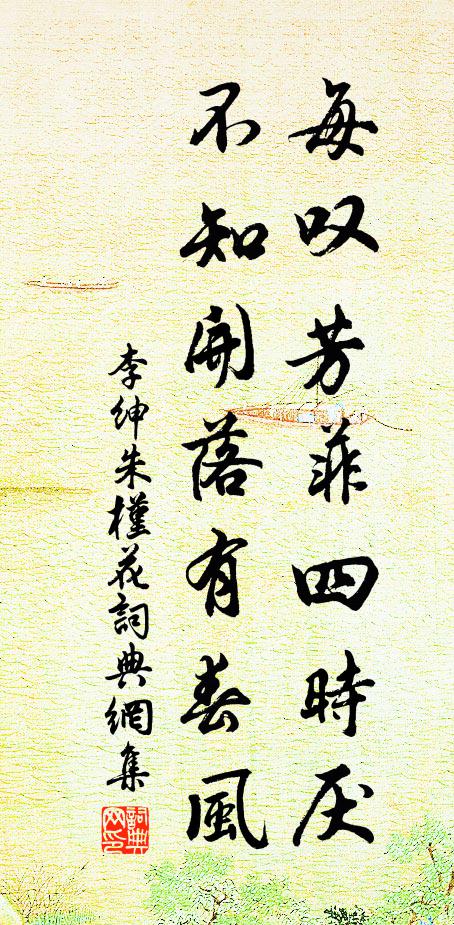 每叹芳菲四時厌
不知開落有春風
李紳朱槿花詞典網集
詞典網印